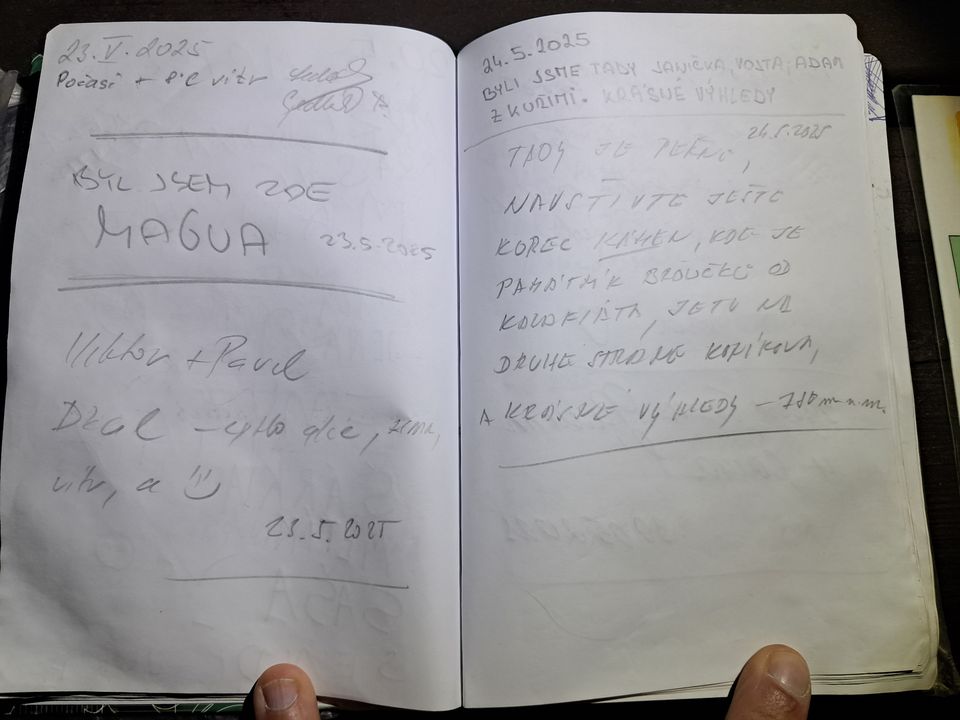 23.V.2025
Počasí + vítr
BYL JSEM ZDE
MAGUA 23.5.2025
Viktor + Pavel
Džul – cyklo zima,
vítr, a
23.5.2025
24.5.2025
BYLI JSME TADY JANIČKA, VOJTA, ADAM
Z KUŘIMI. KRÁSNÉ VÝHLEDY
24.5.2025
TADY JE PĚKNĚ,
NAVŠTIVTE JEŠTĚ
KOREC KÁMEN, KDE JE
PAMÁTNÍK BROUČKŮ OD
JETU NA
DRUHÉ STRÁNĚ KONÍKOVA,
A KRÁSNÉ VÝHLEDY – m n.m.